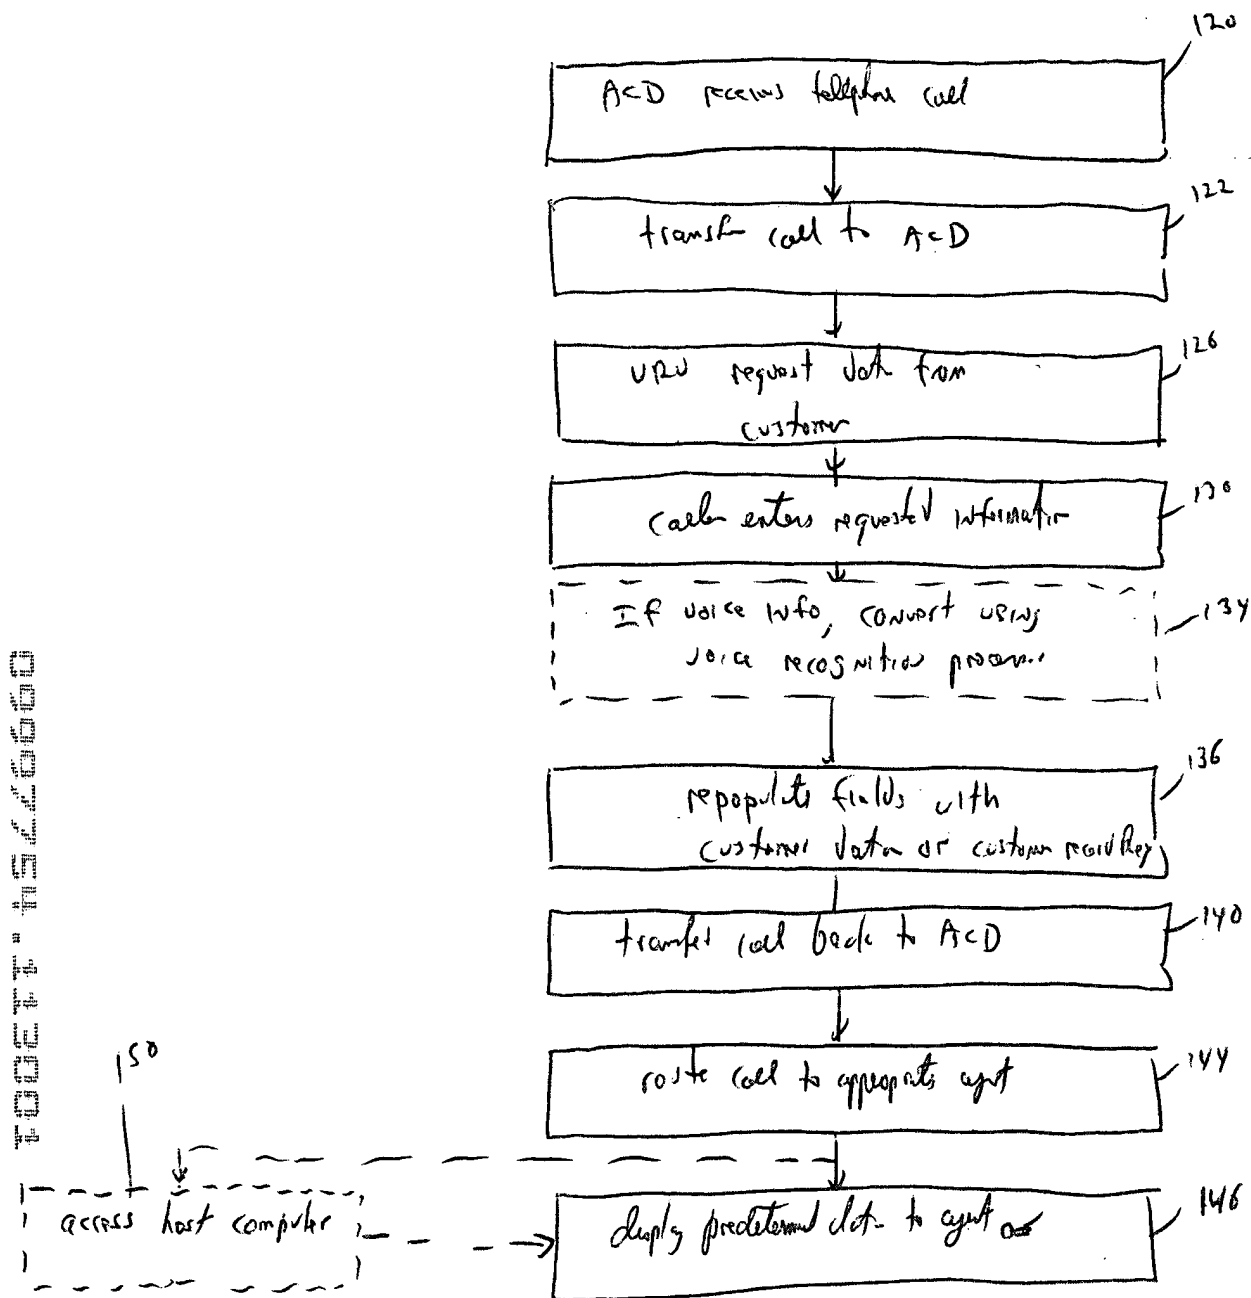 120
ACD receives telephone call
122
transfer call to ACD
126
VRU request data from
customer
130
caller enters requested information
If voice info, convert using
voice recognition processor
134
136
repopulate fields with
customer data or customer record key
transfer call back to ACD
140
route call to appropriate agent
144
150
access host computer
display predetermined data to agent
146
09997754.113001